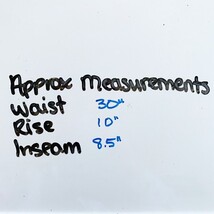 Approx Measurements
Waist 30"
Rise 10"
Inseam 8.5"